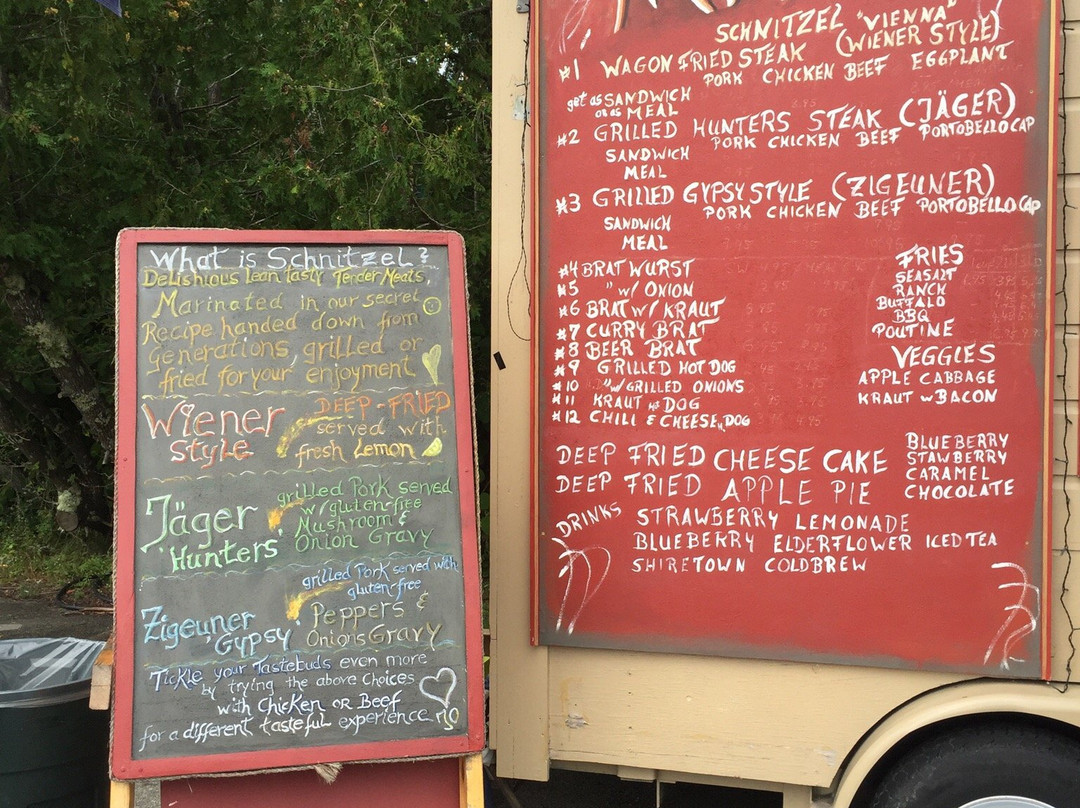 What is Schnitzel?
Delishious lean tasty Tender Meats,
Marinated in our secret
Recipe handed down from
Generations, grilled or
fried for your enjoyment
Wiener style
DEEP-FRIED
served with
fresh Lemon
Jäger
'Hunters'
grilled Pork served
w/gluten-free
Mushroom &
Onion Gravy
Zigeuner
'Gypsy'
grilled Pork served with
gluten-free
Peppers &
Onions Gravy
Tickle your Tastebuds even more
by trying the above Choices
with Chicken OR Beef
for a different tasteful experience
SCHNITZEL "VIENNA"
#1 WAGON FRIED STEAK (WIENER STYLE)
PORK CHICKEN BEEF EGGPLANT
get as SANDWICH
or as MEAL
#2 GRILLED HUNTERS STEAK (JÄGER)
PORK CHICKEN BEEF PORTOBELLO CAP
SANDWICH
MEAL
#3 GRILLED GYPSY STYLE (ZIGEUNER)
PORK CHICKEN BEEF PORTOBELLO CAP
SANDWICH
MEAL
#4 BRATWURST
#5 " w/ ONION
#6 BRAT w/ KRAUT
#7 CURRY BRAT
#8 BEER BRAT
#9 GRILLED HOT DOG
#10 " w/GRILLED ONIONS
#11 KRAUT DOG
#12 CHILI & CHEESE DOG
FRIES
SEASALT
RANCH
BUFFALO
BBQ
POUTINE
VEGGIES
APPLE CABBAGE
KRAUT w BACON
DEEP FRIED CHEESE CAKE
DEEP FRIED APPLE PIE
BLUEBERRY
STAWBERRY
CARAMEL
CHOCOLATE
DRINKS
STRAWBERRY LEMONADE
BLUEBERRY ELDERFLOWER ICED TEA
SHIRETOWN COLDBREW